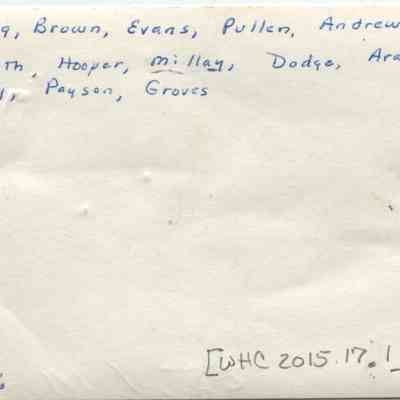 Brown, Evans, Pullen, Andrew
Hooper, Millay, Dodge,
Payson, Groves
[WHC 2015.17.1